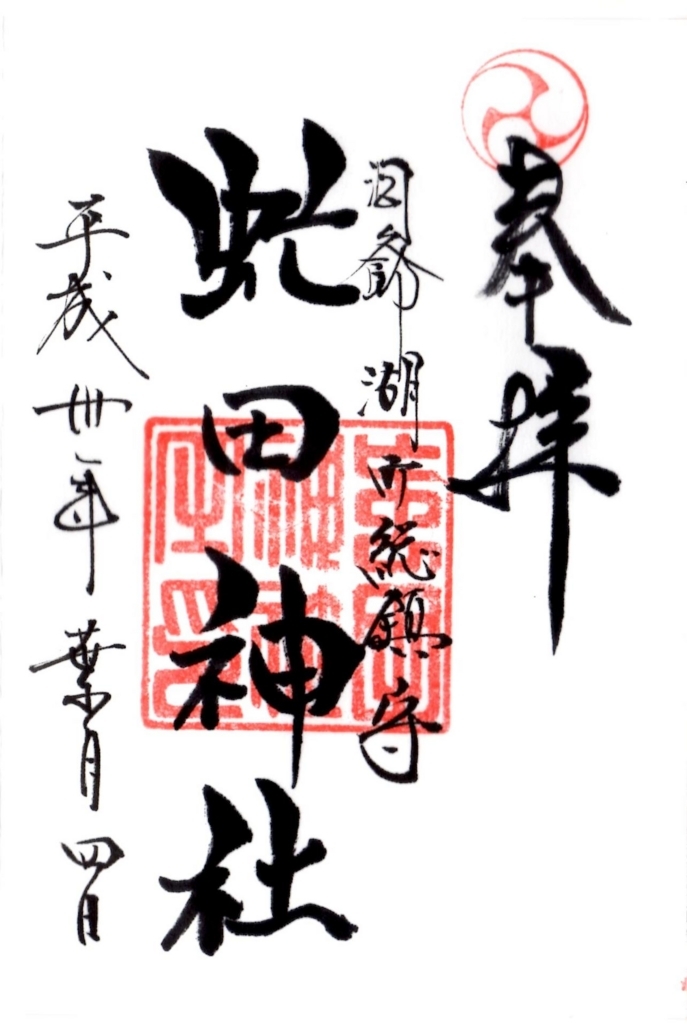 奉拝
洞爺湖町総鎮守
虻田神社
平成卅年葉月四日